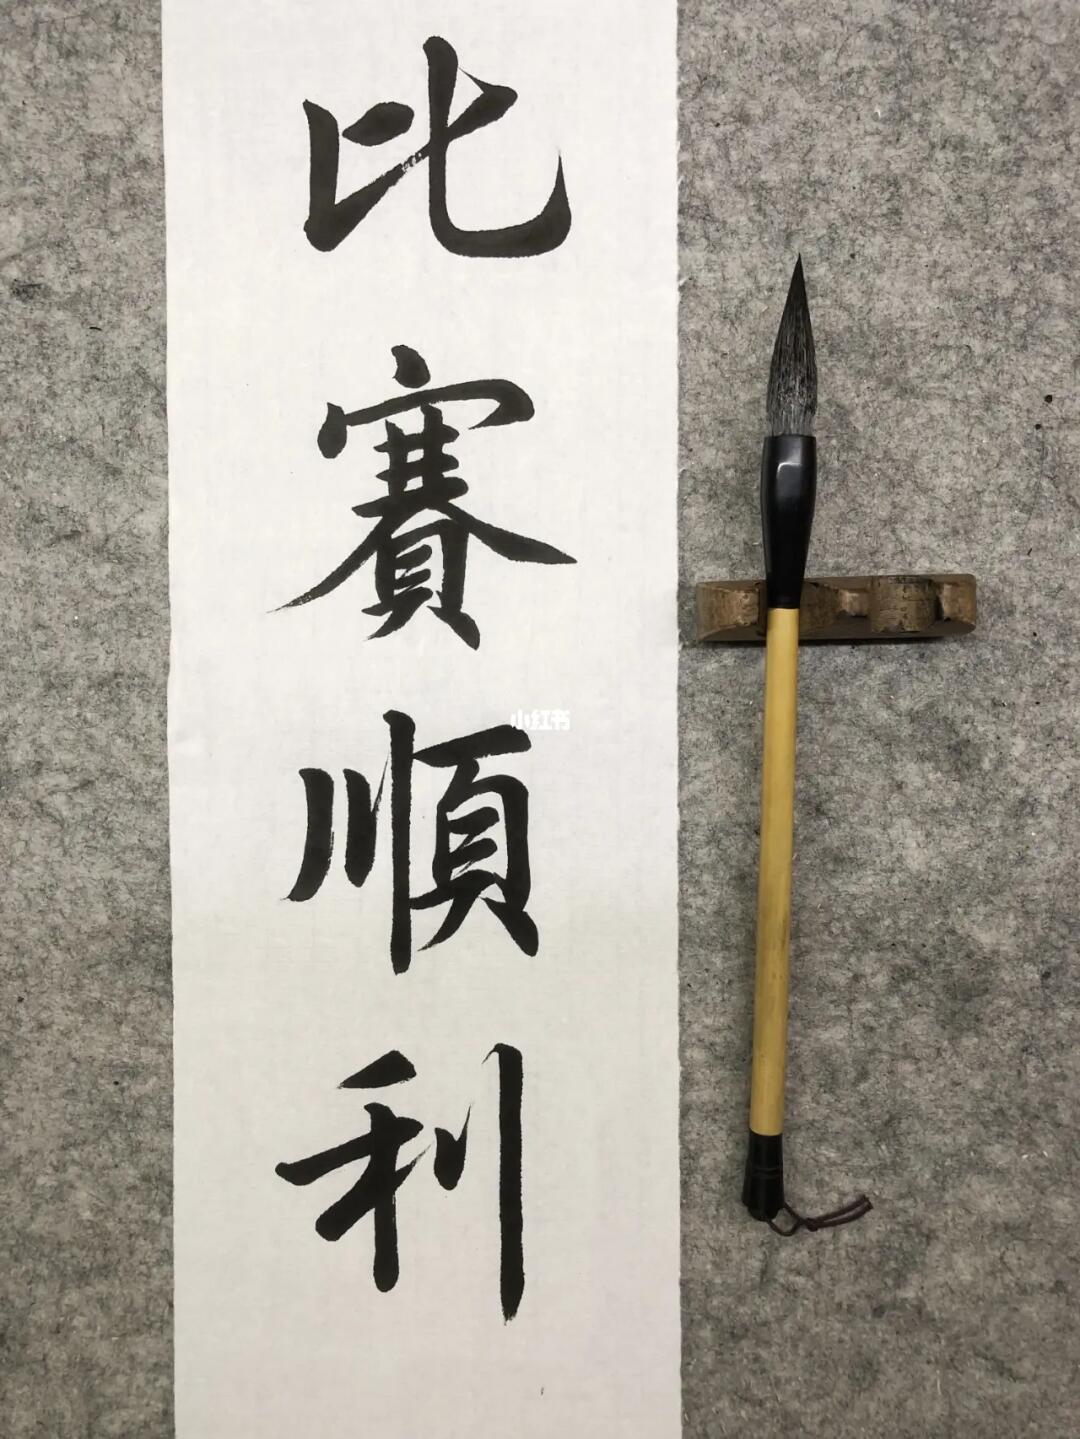 比賽順利
小红书